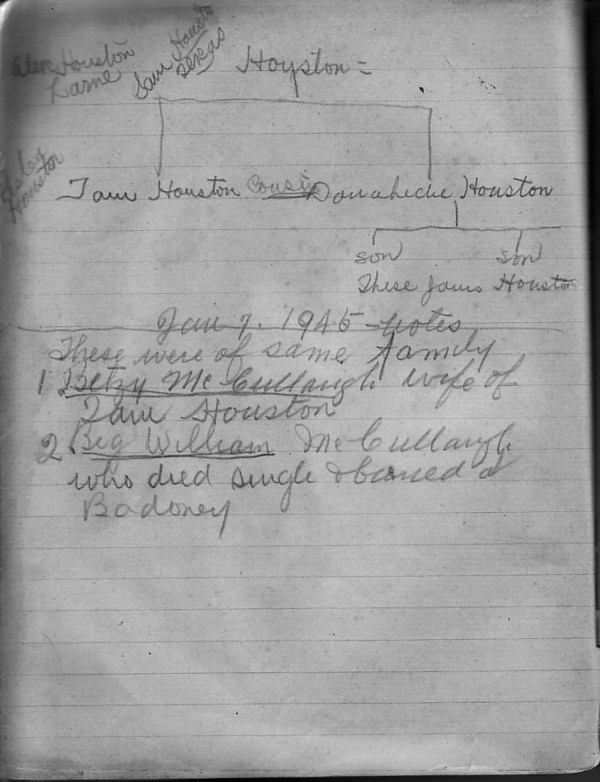 Houston
Larne
Sam Houston
Texas
Hoyston =
Houston
Tam Houston Cousin Donaheche Houston
son son
These Jams Houston
Jan 7. 1945 - notes
These were of same family
1 Betzy McCullaugh wife of
Tam Houston
2 Big William McCullaugh
who died single & buried at
Badoney